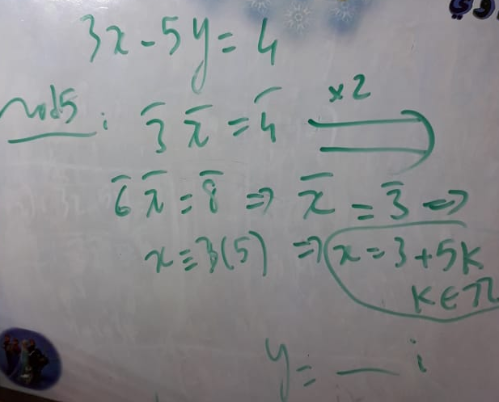 3x - 5y = 4
mod5 : 3̄ x̄ = 4̄ ×2
6̄ x̄ = 8̄ => x̄ = 3̄ =>
x ≡ 3(5) => x = 3 + 5k
k ∈ ℤ
y = __ i